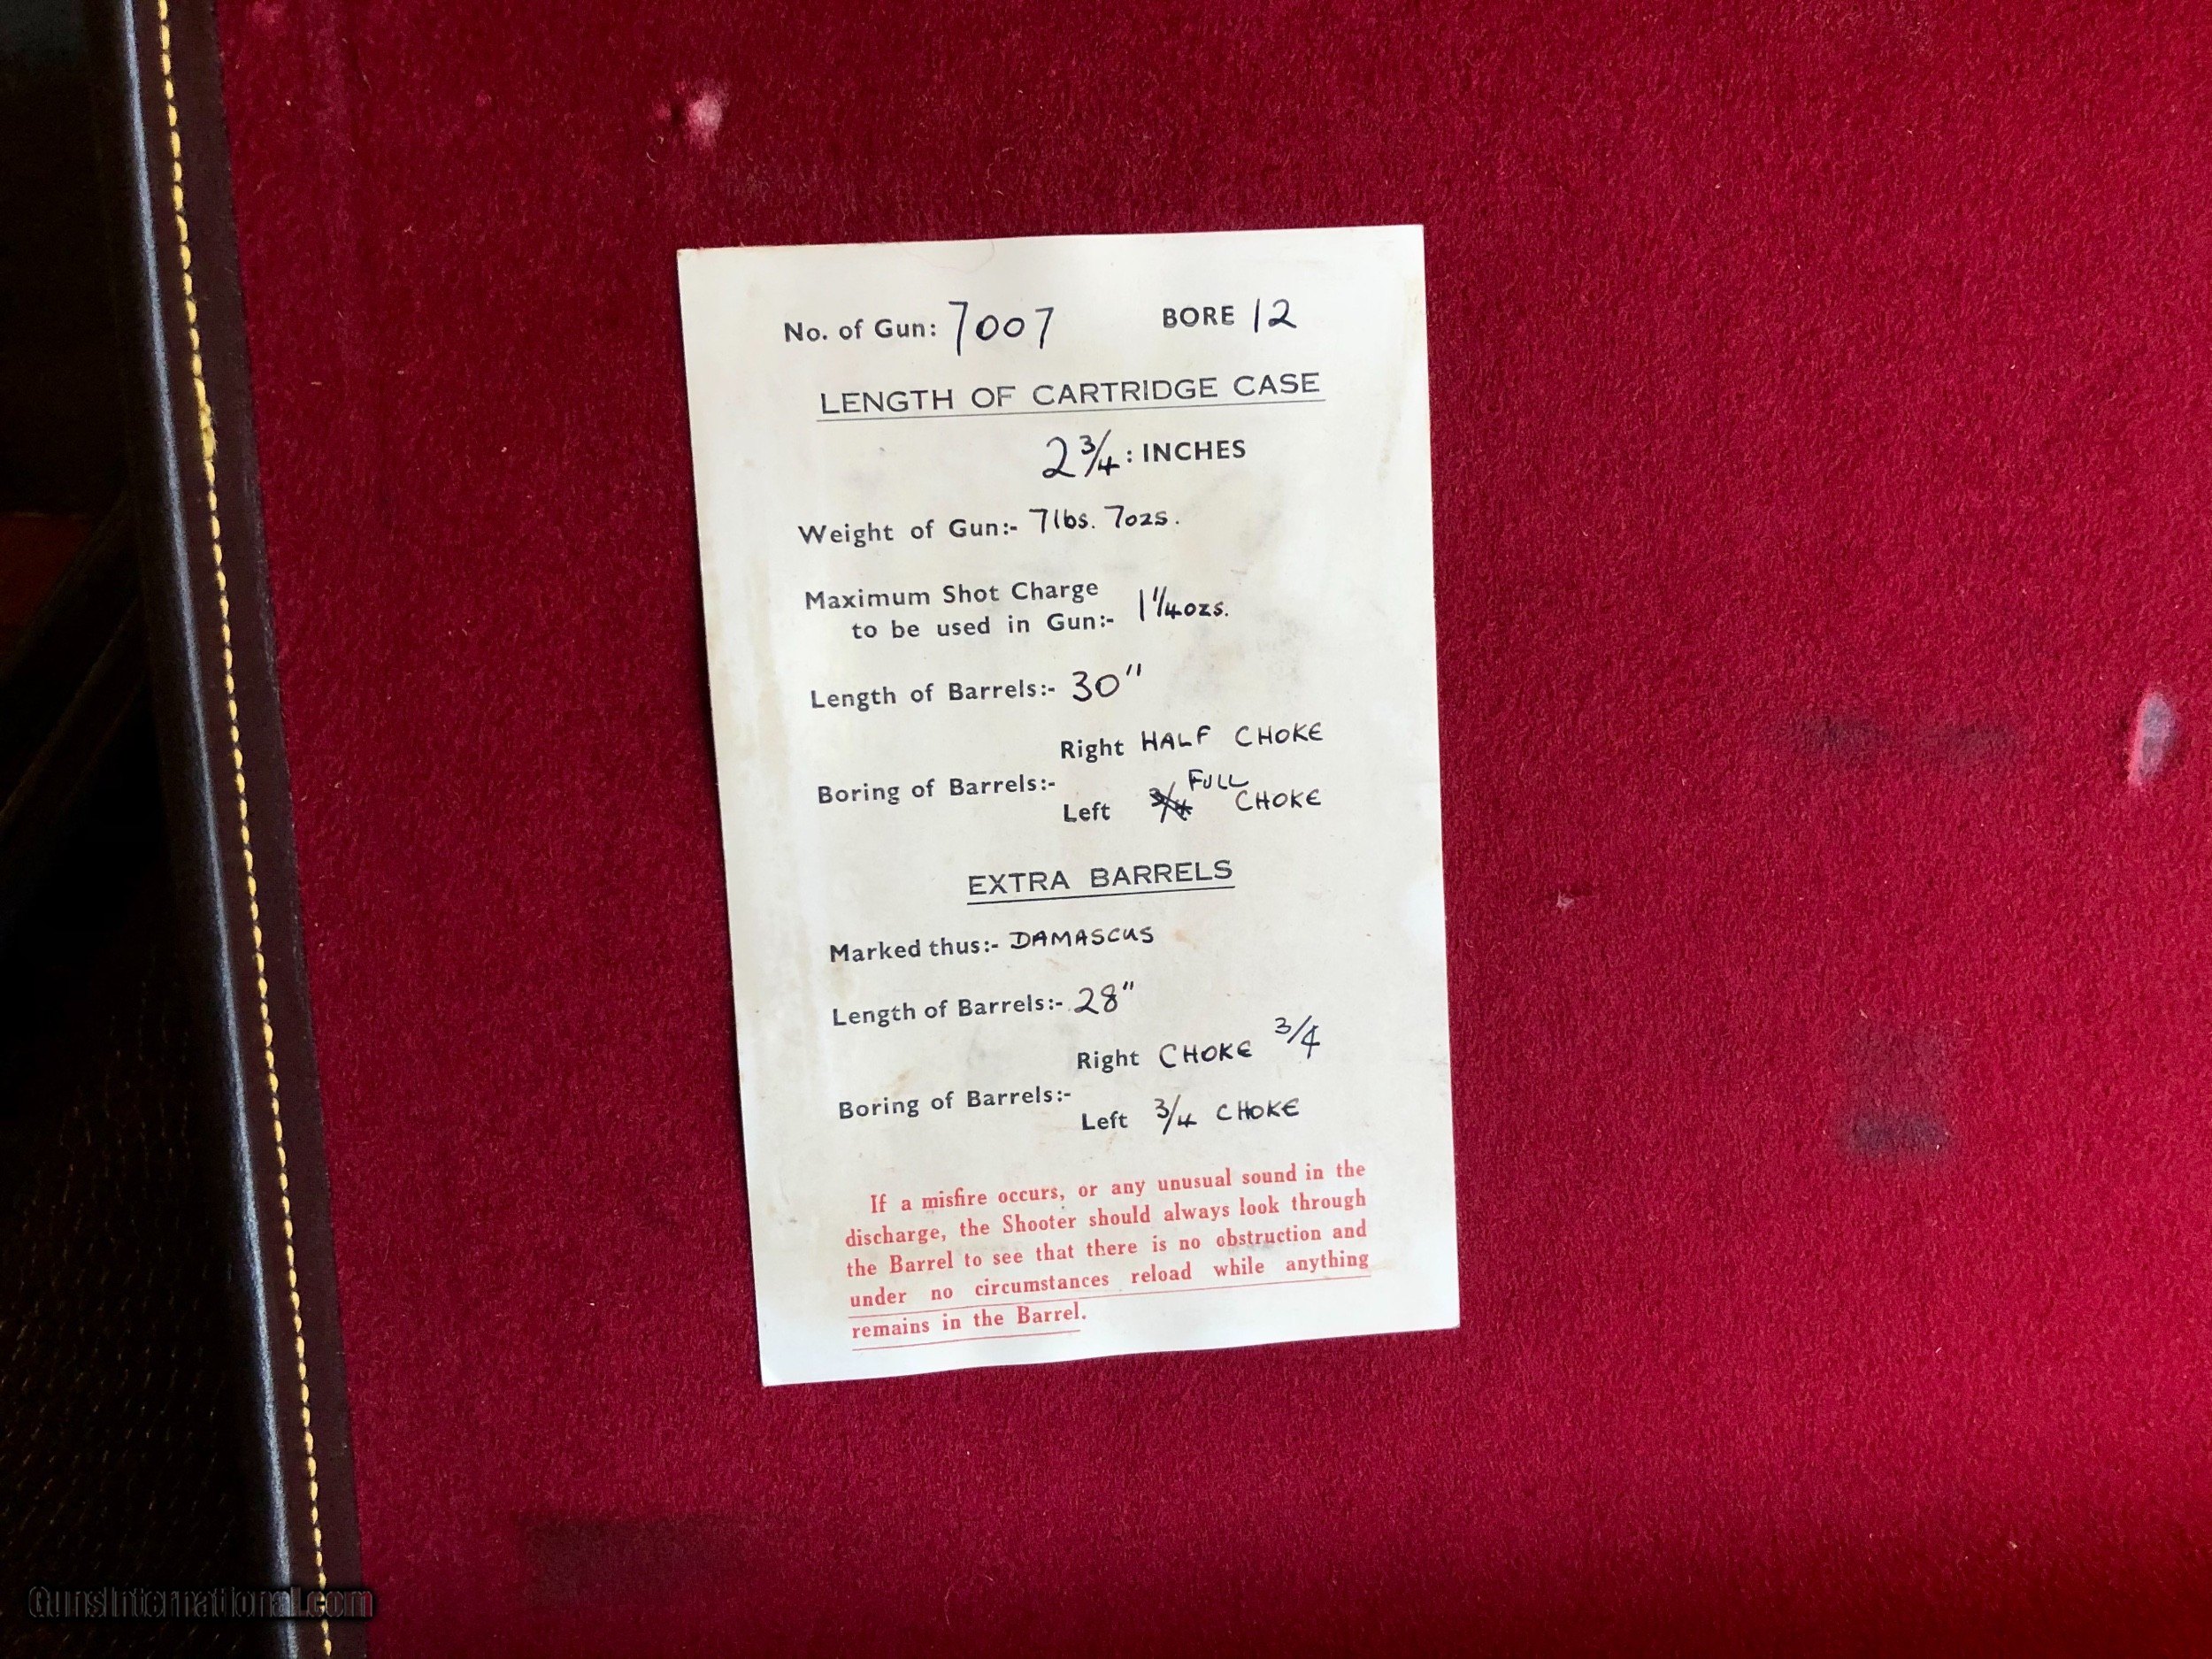 No. of Gun: 7007 BORE 12
LENGTH OF CARTRIDGE CASE
2 3/4 : INCHES
Weight of Gun:- 7lbs. 7ozs.
Maximum Shot Charge
to be used in Gun:- 1 1/4 ozs.
Length of Barrels:- 30"
Right HALF CHOKE
Boring of Barrels:-
FULL
Left 3/4 CHOKE
EXTRA BARRELS
Marked thus:- DAMASCUS
Length of Barrels:- 28"
Right CHOKE 3/4
Boring of Barrels:-
Left 3/4 CHOKE
If a misfire occurs, or any unusual sound in the
discharge, the Shooter should always look through
the Barrel to see that there is no obstruction and
under no circumstances reload while anything
remains in the Barrel.
GunsInternational.com